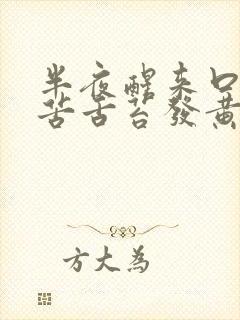 半夜醒来口
苦舌苔發黄
方大為